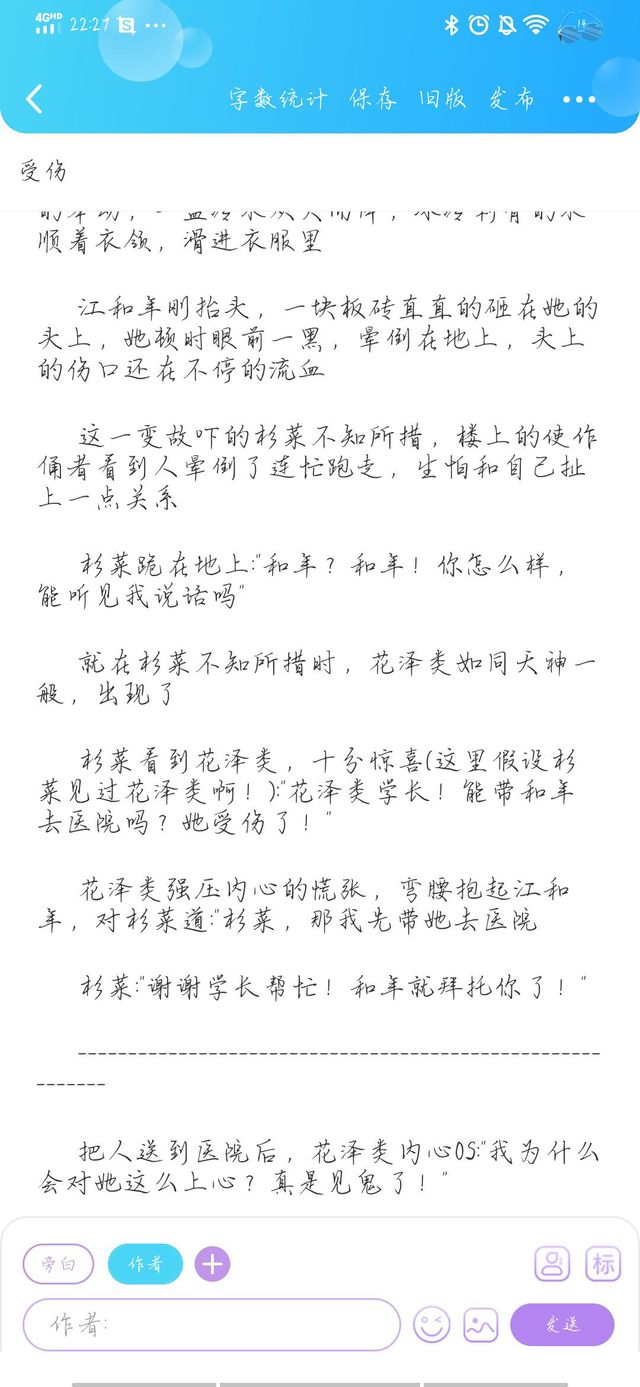 4GHD 22:27 S ...
14
字数统计 保存 旧版 发布
受伤
顺着衣领，滑进衣服里
江和年刚抬头，一块板砖直直的砸在她的
头上，她顿时眼前一黑，晕倒在地上，头上
的伤口还在不停的流血
这一变故吓的杉菜不知所措，楼上的使作
俑者看到人晕倒了连忙跑走，生怕和自己扯
上一点关系
杉菜跪在地上:"和年？和年！你怎么样，
能听见我说话吗"
就在杉菜不知所措时，花泽类如同天神一
般，出现了
杉菜看到花泽类，十分惊喜(这里假设杉
菜见过花泽类啊！):"花泽类学长！能带和年
去医院吗？她受伤了！"
花泽类强压内心的慌张，弯腰抱起江和
年，对杉菜道:"杉菜，那我先带她去医院
杉菜:"谢谢学长帮忙！和年就拜托你了！"
----------------------------------------------------
-------
把人送到医院后，花泽类内心OS:"我为什么
会对她这么上心？真是见鬼了！"
旁白 作者 + 标
作者: 发送